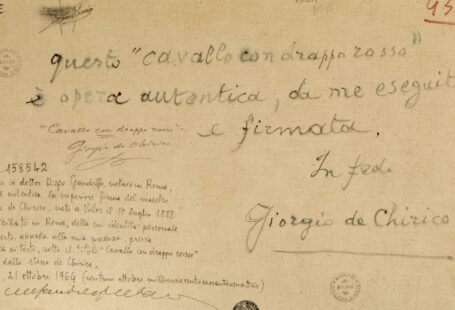 E
95
Questo "cavallo con drappo rosso"
è opera autentica, da me eseguit
e firmata.
In fede
Giorgio de Chirico
"Cavallo con drappo rosso"
Giorgio de Chirico
.158542
io dottor Diego Gandolfo, notaio in Roma,
autentica la superiore firma del maestro
de Chirico, nato a Volos il 10 luglio 1888
in Roma, della cui identità personale
apposta alla mia presenza, previa
il titolo "Cavallo con drappo rosso"
dallo stesso de Chirico.
, 21 ottobre 1964 (ventuno ottobre